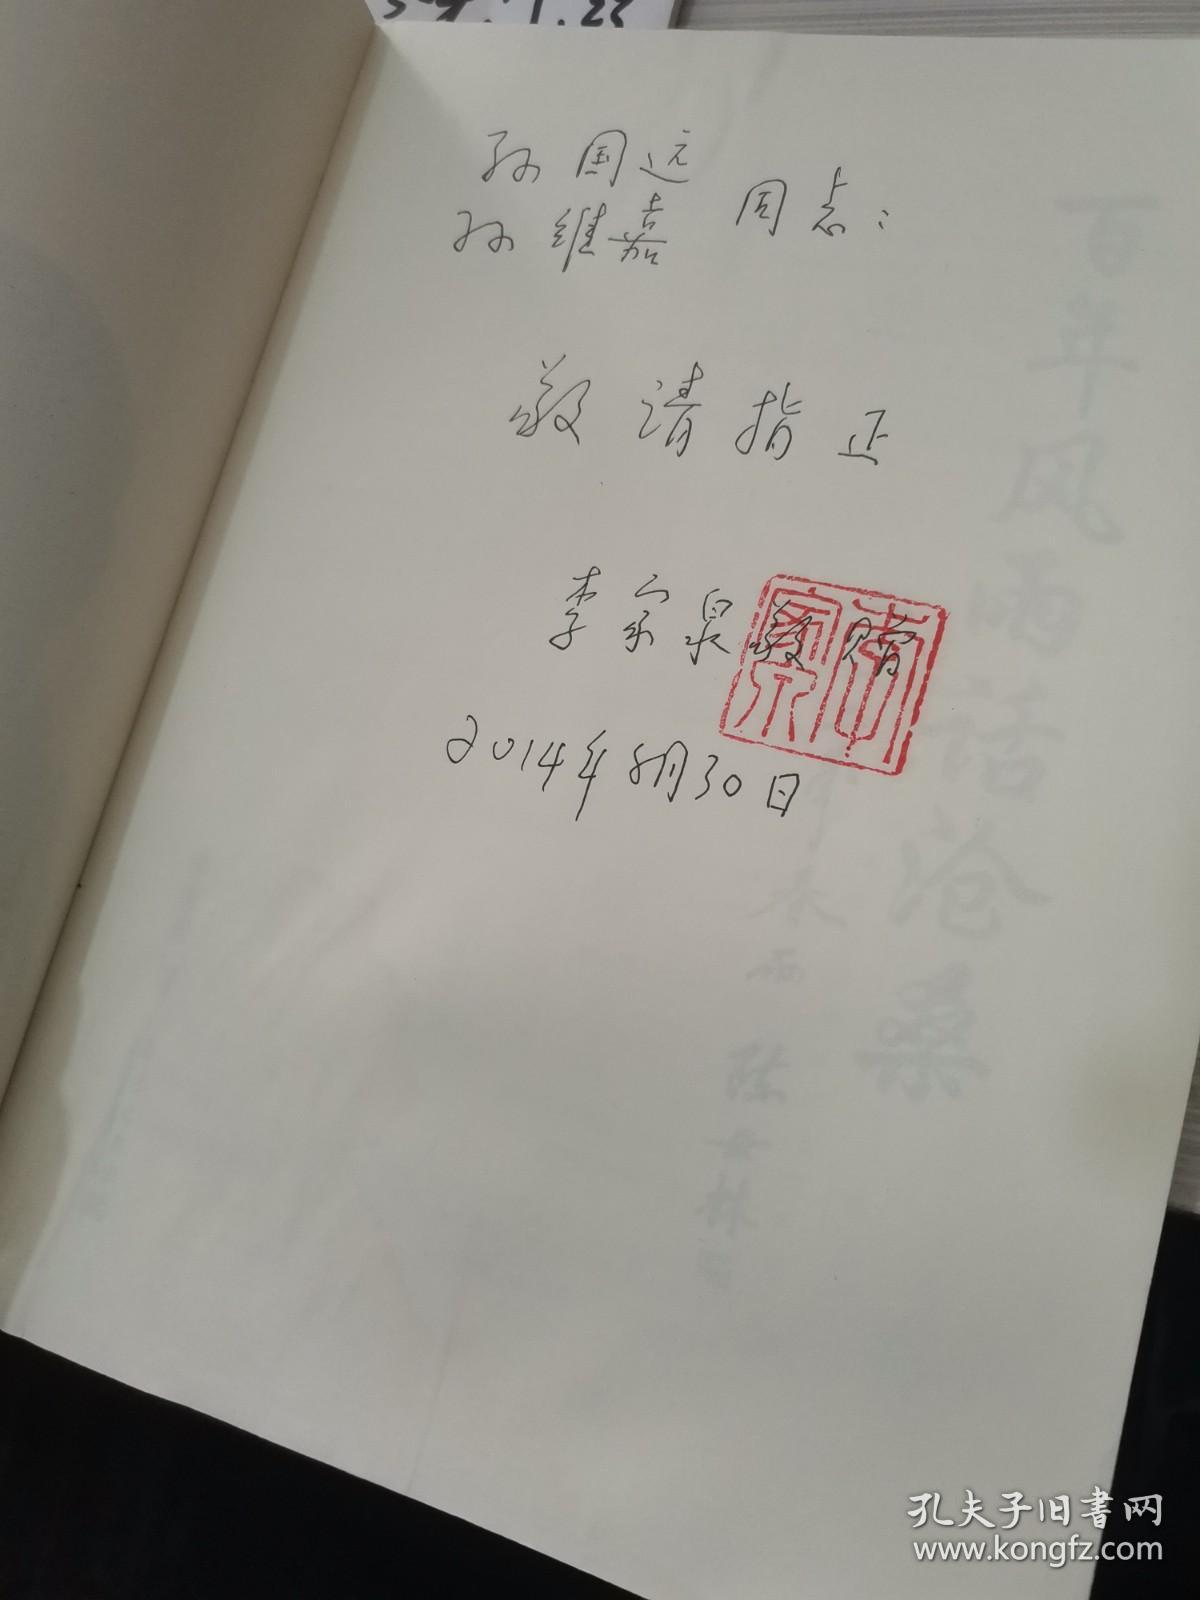 孙国远
孙维嘉 同志：
敬请指正
李宗泉敬赠
2014年8月30日
百年风雨話沧桑
孔夫子旧书网
www.kongfz.com